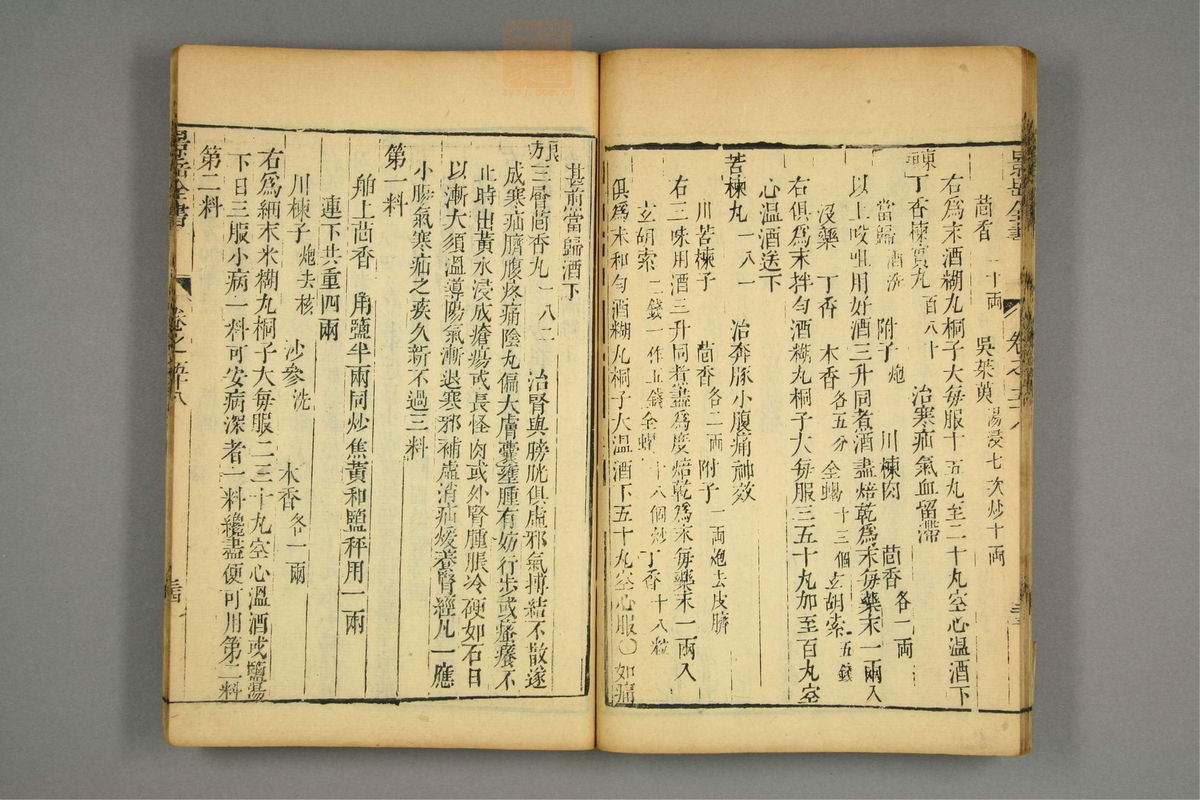 景岳全書 卷之五十八
茴香 二十兩 吳茱萸 湯浸七次炒十兩
右爲末酒糊丸桐子大每服十五丸至二十丸空心温酒下
丁香楝實丸 百八十 治寒疝氣血留滯
當歸 酒洗 附子 炮 川楝肉 茴香 各一兩
以上㕮咀用好酒三升同煮酒盡焙乾爲末每藥末一兩入
沒藥 丁香 木香 各五分 全蝎 十三個 玄胡索 五錢
右俱爲末拌勻酒糊丸桐子大每服三五十丸加至百丸空
心温酒送下
苦楝丸 一八一 治奔豚小腹痛神效
川苦楝子 茴香 各二兩 附子 一兩炮去皮臍
右三味用酒三升同煮盡爲度焙乾爲末每藥末一兩入
玄胡索 二錢一作五錢 全蝎 十八個炒 丁香 十八粒
俱爲末和勻酒糊丸桐子大温酒下五十丸空心服〇如痛
甚煎當歸酒下
三層茴香丸 一八二 治腎與膀胱俱虛邪氣搏結不散遂
成寒疝臍腹疼痛陰丸偏大膚囊壅腫有妨行步或瘙癢不
止時出黃水浸成瘡瘍或長怪肉或外腎腫脹冷硬如石日
以漸大須溫導陽氣漸退寒邪補虛消疝煖養腎經凡一應
小腸氣寒疝之疾久新不過三料
第一料
舶上茴香 用鹽半兩同炒焦黃和鹽秤用一兩
川楝子 炮去核 沙參 洗 木香 各一兩
連下共重四兩
右爲細末米糊丸桐子大每服二三十丸空心溫酒或鹽湯
下日三服小病一料可安病深者一料纔盡便可用第二料
第二料
景岳全書 卷之五十八